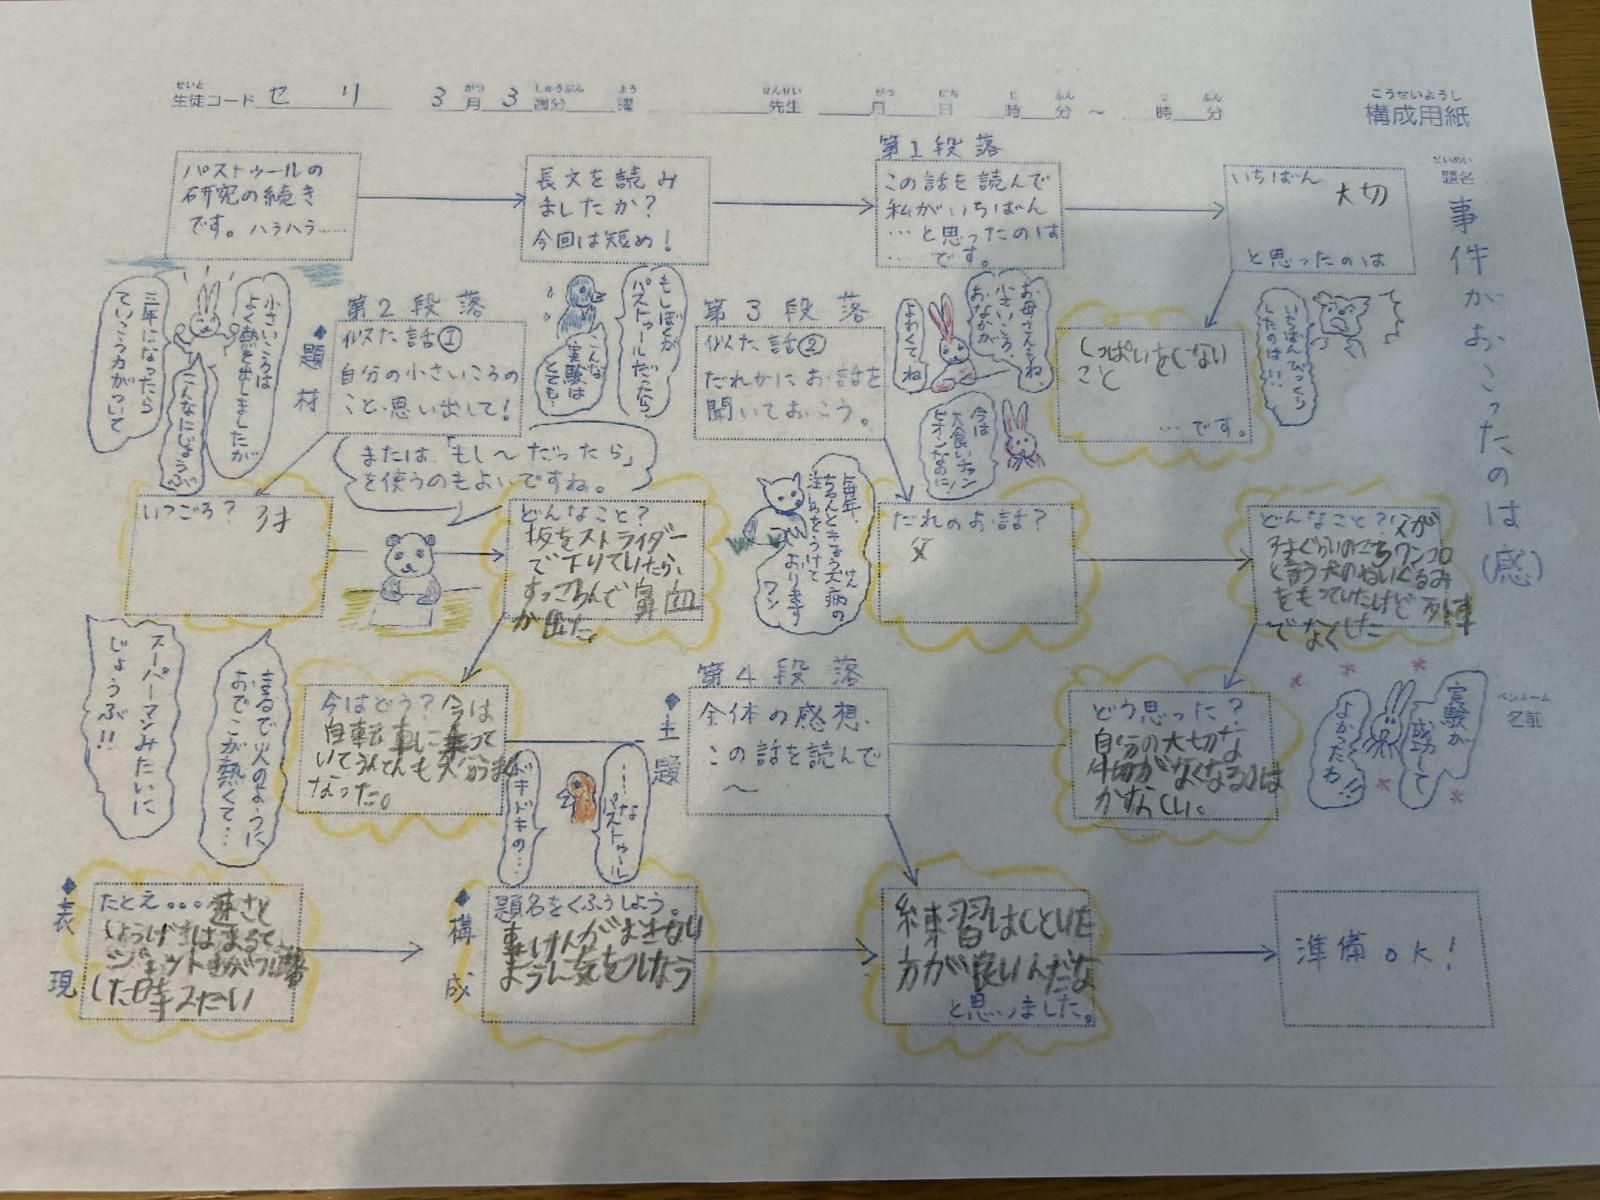 生徒コード セ リ 3月 3週分 曜 先生 月 日 時 分 ～ 時 分
構成用紙
題名
事件がおこったのは(感)
パストゥールの
研究の続き
です。ハラハラ……
長文を読み
ましたか?
今回は短め!
第1段落
この話を読んで
私がいちばん
…と思ったのは
…です。
いちばん
大切
と思ったのは
しっぱいをしない
こと
…です。
いちばんびっくり
したのは!!
第2段落
◆題材
似た話①
自分の小さいころの
こと、思い出して!
小さいころは
よく熱を出しましたが
三年になったら
ていこう力がついて
こんなにじょうぶ
または「もし～だったら」
を使うのもよいですね。
もしぼくが
パストゥールだったら
こんな
実験は
とても…
第3段落
似た話②
だれかにお話を
聞いておこう。
お母さんもね
小さいころ、
おなかが
よわくてね
今は
大食いチャン
ピオンなのに!
いつごろ?
どんなこと?
坂をストライダー
で下りていたら、
すっころんで鼻血
が出た
毎年、
ちゃんときょう犬病の
注しゃをうけて
おります
ワン
だれのお話?
父
どんなこと?父が
と言う犬のぬいぐるみ
をもっていたけど
でなくした
スーパーマンみたいに
じょうぶ!!
まるで火のように
おでこが熱くて…
今はどう?今は
自転車に乗って
なった。
◆主題
第4段落
全体の感想、
この話を読んで
～
どう思った?
自分の大切な
物がなくなるのは
かなしい。
実験が
成功して
よかったわ!!
ペンネーム
名前
ドキドキの…
……な
パストゥール
◆表現
たとえ。。。速さと
しょうげきはまるで、
した時みたい
◆構成
題名をくふうしよう。
事けんがおきない
ように気をつけよう
練習はしといた
方が良いんだな
と思いました。
準備OK!